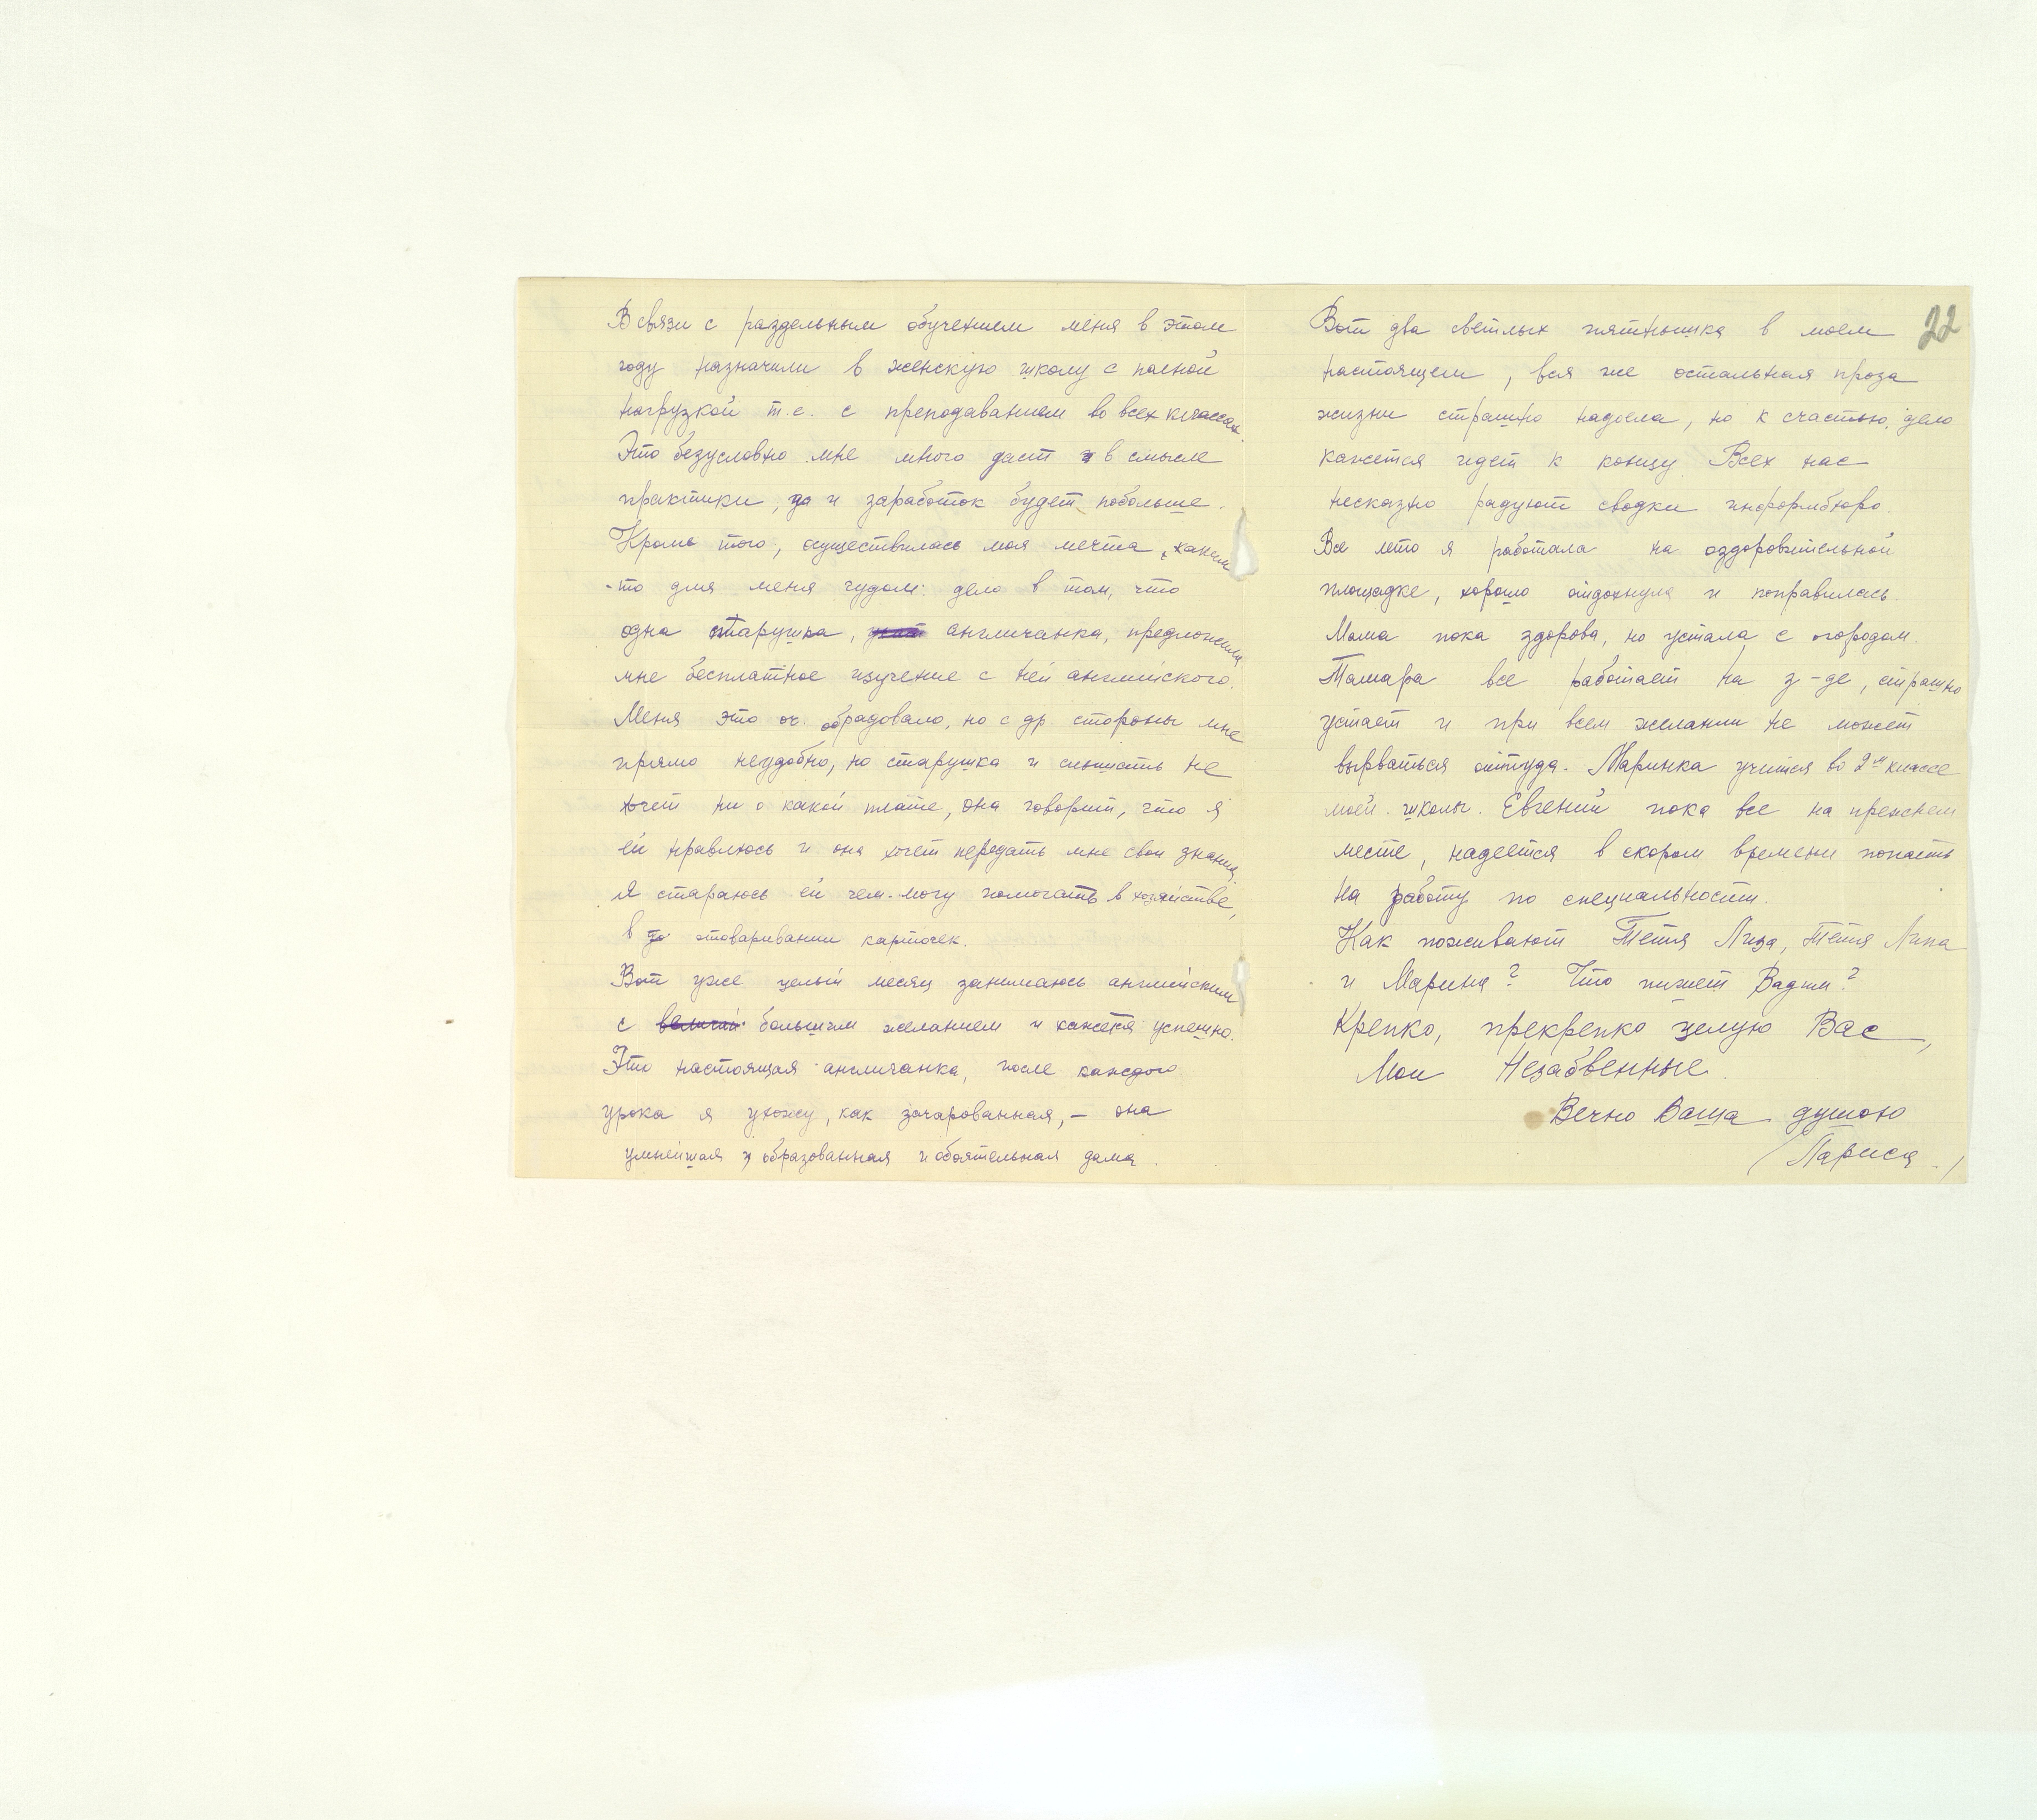 В связи с раздельным обучением меня в этом
году назначили в женскую школу с полной
нагрузкой т.е. с преподаванием во всех классах.
Это безусловно мне много даст в смысле
практики, да и заработок будет побольше.
Кроме того, осуществилась моя мечта, каким
-то для меня чудом: дело в том, что
одна старушка, англичанка, предложила
мне бесплатное изучение с ней английского.
Меня это оч. обрадовало, но с др. стороны мне
прямо неудобно, но старушка и слышать не
хочет ни о какой плате, она говорит, что я
ей нравлюсь и она хочет передать мне свои знания,
Я стараюсь ей чем-могу помогать в хозяйстве,
в отоваривании карточек.
Вот уже целый месяц занимаюсь английским
с большим желанием и кажется успешно.
Это настоящая англичанка, после каждого
урока я ухожу, как зачарованная, – она
умнейшая и образованная и обаятельная дама.
22
Вот два светлых пятнышка в моем
настоящем, вся же остальная проза
жизни страшно надоела, но к счастью, дело
кажется идет к концу. Всех нас
несказно радуют сводки информбюро.
Все лето я работала на оздоровительной
площадке, хорошо отдохнула и поправилась.
Мама пока здорова, но устала с огородом.
Тамара все работает на з-де, страшно
устает и при всем желании не может
вырваться оттуда. Маринка учится во 2м классе
моей школы. Евгений пока все на прежнем
месте, надеется в скором времени попасть
на работу по специальности.
Как поживают Тетя Лиза, тетя Липа
и Марина? Что пишет Вадим?
Крепко, прекрепко целую Вас,
Мои Незабвенные.
Вечно Ваша душою
/Лариса./